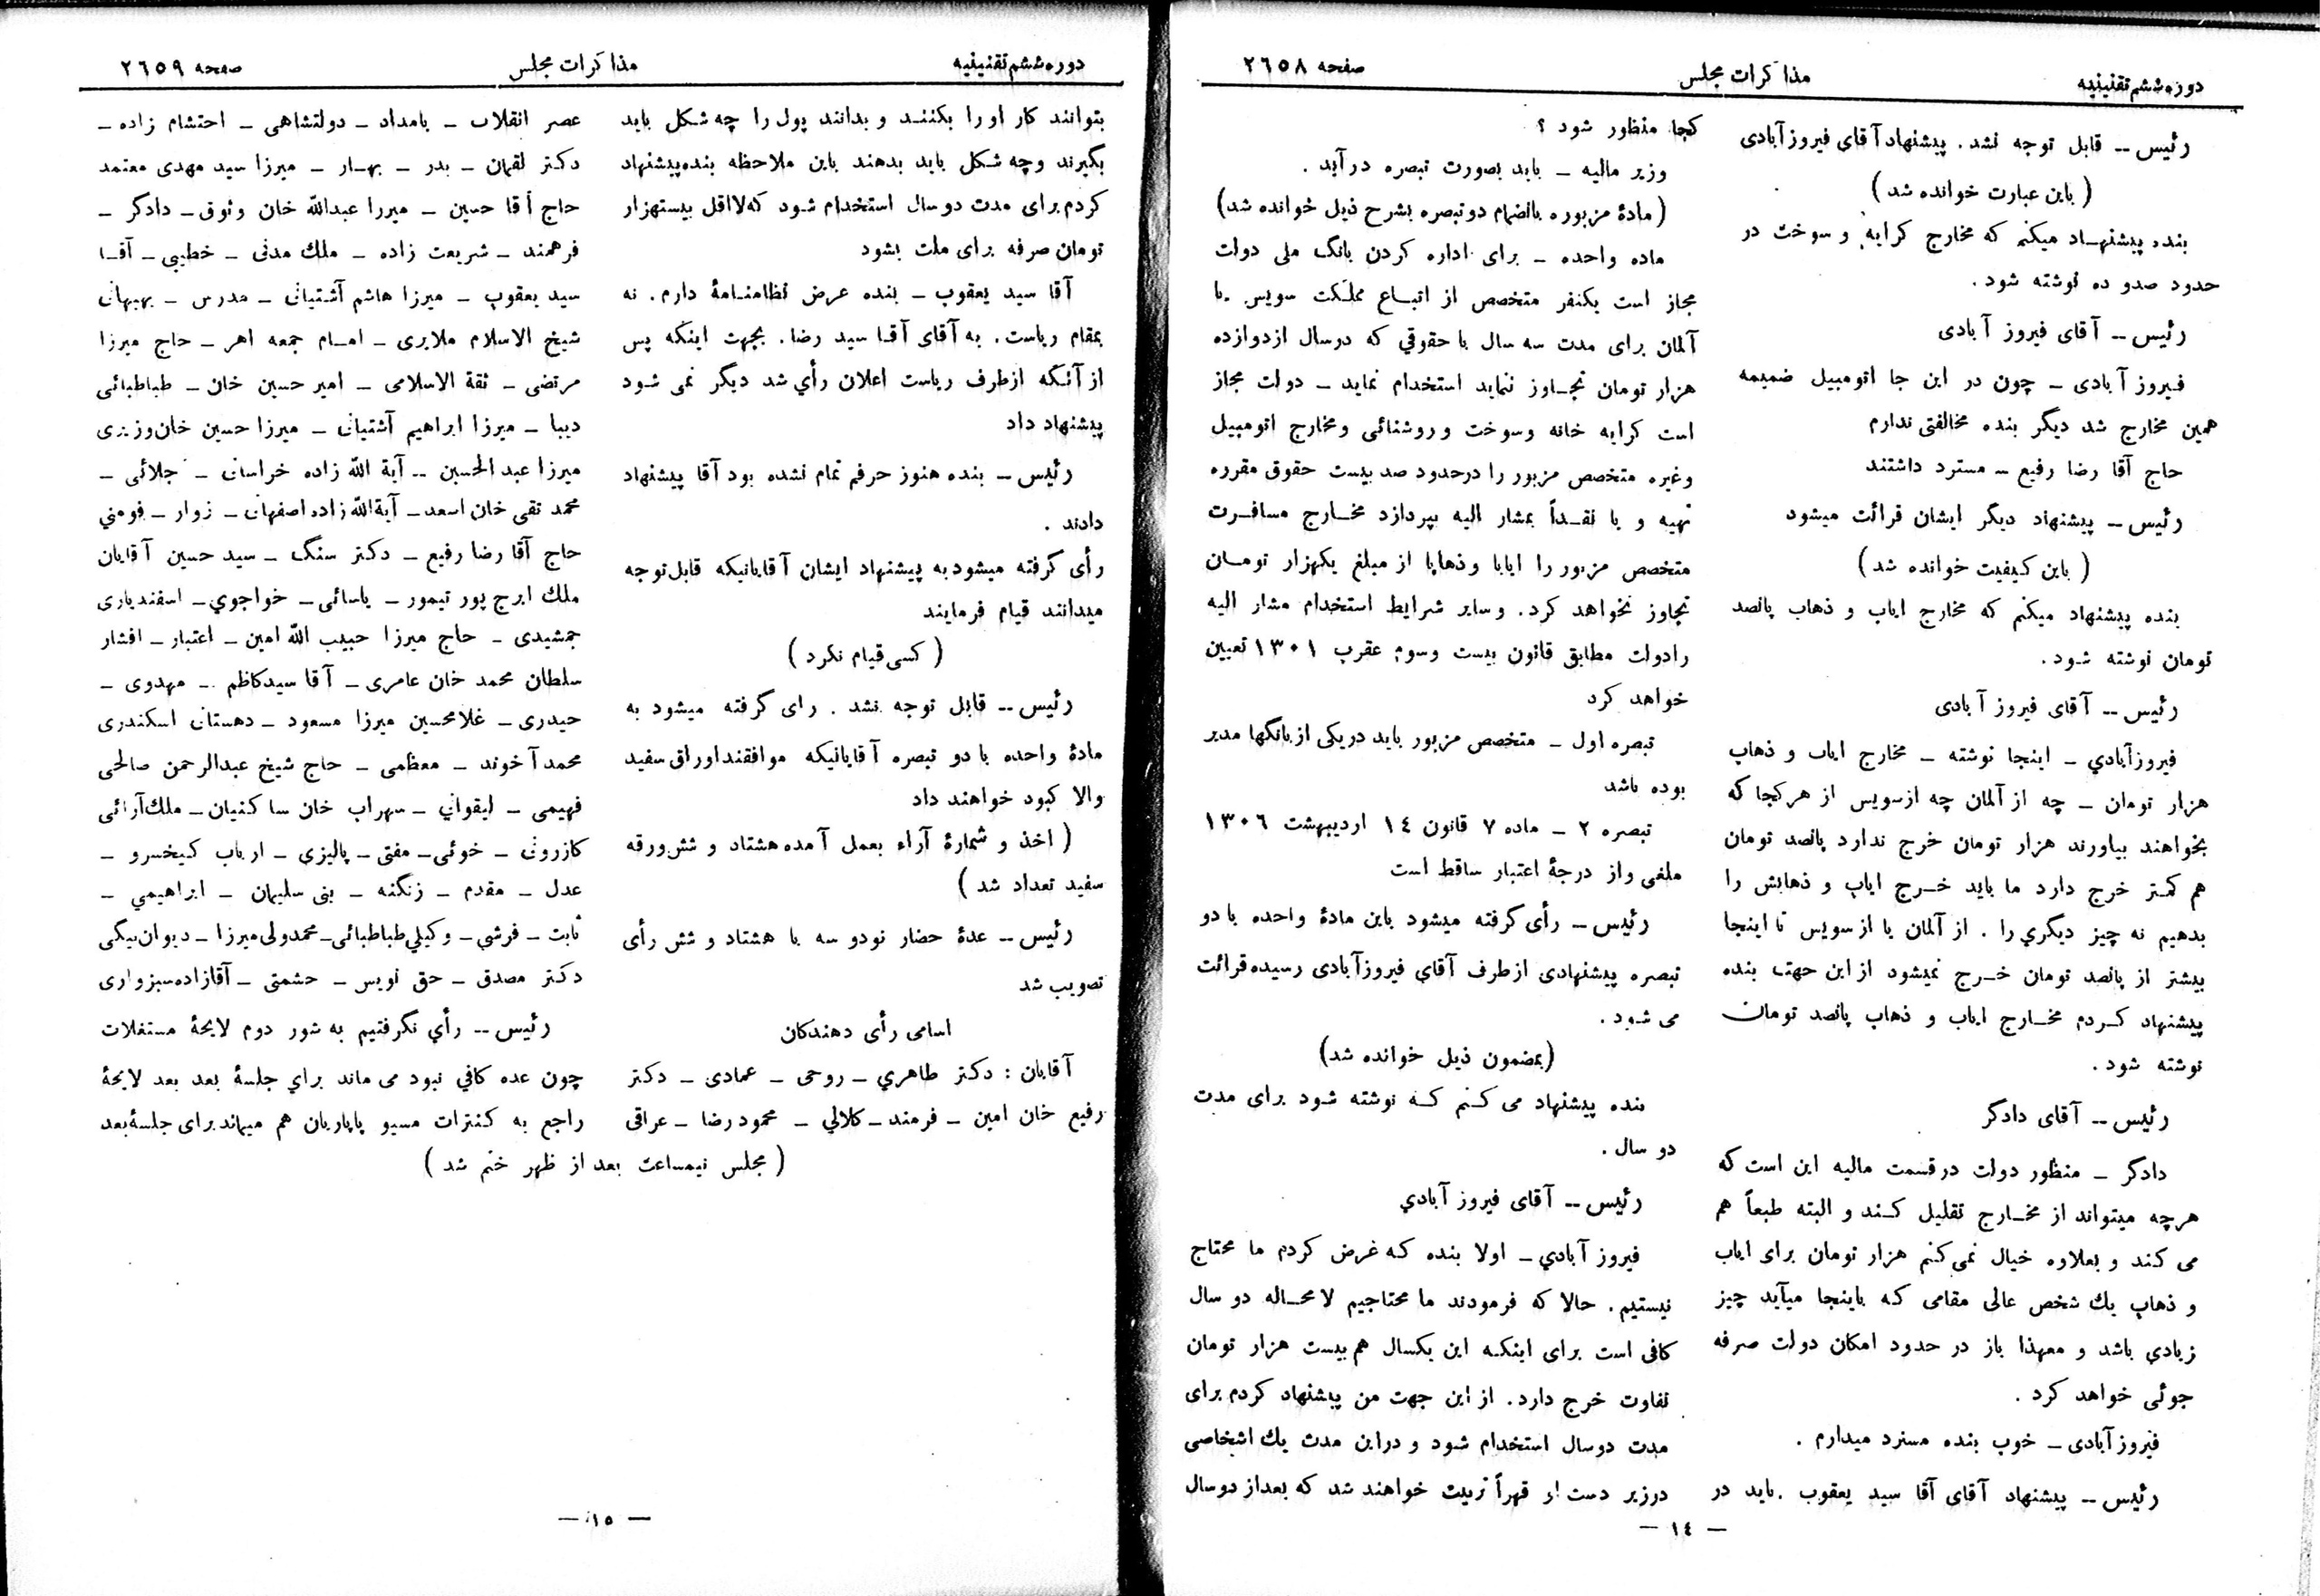 دوره ششم تقنینیه
مذاکرات مجلس
صفحه ۲۶۵۸
رئیس -- قابل توجه نشد. پیشنهاد آقای فیروزآبادی
( باین عبارت خوانده شد )
بنده پیشنهاد میکنم که مخارج کرایه و سوخت در
حدود صدو ده نوشته شود.
رئیس -- آقای فیروز آبادی
فیروز آبادی - چون در این جا اتومبیل ضمیمه
همین مخارج شد دیگر بنده مخالفتی ندارم
حاج آقا رضا رفیع - مسترد داشتند
رئیس - پیشنهاد دیگر ایشان قرائت میشود
( باین کیفیت خوانده شد )
بنده پیشنهاد میکنم که مخارج ایاب و ذهاب پانصد
تومان نوشته شود.
رئیس -- آقای فیروز آبادی
فیروزآبادي - اینجا نوشته - مخارج ایاب و ذهاب
هزار تومان - چه از آلمان چه ازسویس از هرکجا که
بخواهند بیاورند هزار تومان خرج ندارد پانصد تومان
هم کمتر خرج دارد ما باید خرج ایاب و ذهابش را
بدهیم نه چیز دیگري را . از آلمان یا از سویس تا اینجا
بیشتر از پانصد تومان خرج نمیشود از این جهت بنده
پیشنهاد کردم مخارج ایاب و ذهاب پانصد تومان
نوشته شود .
رئیس -- آقای دادگر
دادگر - منظور دولت درقسمت مالیه این است که
هرچه میتواند از مخارج تقلیل کند و البته طبعاً هم
می کند و بعلاوه خیال نمی‌کنم هزار تومان برای ایاب
و ذهاب یك شخص عالی مقامی که باینجا میآید چیز
زیادي باشد و معهذا باز در حدود امکان دولت صرفه
جوئی خواهد کرد .
فیروز آبادی - خوب بنده مسترد میدارم .
رئیس -- پیشنهاد آقای آقا سید یعقوب . باید در
کجا منظور شود ؟
وزیر مالیه - باید بصورت تبصره درآید .
( مادهٔ مزبوره بانضمام دو تبصره بشرح ذیل خوانده شد )
ماده واحده - برای اداره کردن بانگ ملی دولت
مجاز است یکنفر متخصص از اتباع مملکت سویس یا
آلمان برای مدت سه سال با حقوقي که درسال ازدوازده
هزار تومان تجاوز ننماید استخدام نماید - دولت مجاز
است کرایه خانه وسوخت و روشنائی ومخارج اتومبیل
وغیره متخصص مزبور را درحدود صد بیست حقوق مقرره
تهیه و یا نقداً بمشار الیه بپردازد مخارج مسافرت
متخصص مزبور را ایابا وذهابا از مبلغ یکهزار تومان
تجاوز نخواهد کرد. وسایر شرایط استخدام مشار الیه
رادولت مطابق قانون بیست وسوم عقرب ۱۳۰۱ تعیین
خواهد کرد
تبصره اول - متخصص مزبور باید دریکی از بانگها مدیر
بوده باشد
تبصره ۲ - ماده ۷ قانون ۱۴ اردیبهشت ۱۳۰۶
ملغی واز درجهٔ اعتبار ساقط است
رئیس - رأی گرفته میشود باین مادهٔ واحده با دو
تبصره پیشنهادی ازطرف آقای فیروزآبادی رسیده قرائت
می شود .
(بمضمون ذیل خوانده شد)
بنده پیشنهاد می کنم که نوشته شود برای مدت
دو سال .
رئیس -- آقای فیروز آبادي
فیروز آبادي - اولا بنده که غرض کردم ما محتاج
نیستیم. حالا که فرمودند ما محتاجیم لامحاله دو سال
کافی است برای اینکه این یکسال هم بیست هزار تومان
تفاوت خرج دارد. از این جهت من پیشنهاد کردم برای
مدت دوسال استخدام شود و دراین مدت یك اشخاصی
درزیر دست او قهراً تربیت خواهند شد که بعداز دوسال
- ۱۴ -
دوره ششم تقنینیه
مذاکرات مجلس
صفحه ۲۶۵۹
بتوانند کار او را بکنند و بدانند پول را چه شکل باید
بگیرند و چه شکل باید بدهند باین ملاحظه بنده پیشنهاد
کردم برای مدت دوسال استخدام شود که لااقل بیستهزار
تومان صرفه برای ملت بشود
آقا سید یعقوب - بنده عرض نظامنامهٔ دارم. نه
بمقام ریاست. به آقای آقا سید رضا. بجهت اینکه پس
از آنکه ازطرف ریاست اعلان رأي شد دیگر نمی شود
پیشنهاد داد
رئیس - بنده هنوز حرفم تمام نشده بود آقا پیشنهاد
دادند .
رأی گرفته میشود به پیشنهاد ایشان آقایانیکه قابل توجه
میدانند قیام فرمایند
( کسی قیام نکرد )
رئیس -- قابل توجه نشد . رای گرفته میشود به
مادهٔ واحده با دو تبصره آقایانیکه موافقند اوراق سفید
والا کبود خواهند داد
( اخذ و شمارهٔ آراء بعمل آمده هشتاد و شش ورقه
سفید تعداد شد )
رئیس -- عدهٔ حضار نودو سه با هشتاد و شش رأی
تصویب شد
اسامی رأی دهندکان
آقایان : دکتر طاهري - روحی - عمادی - دکتر
رفیع خان امین - فرمند - کلالي - محمود رضا - عراقی
عصر انقلاب - بامداد - دولتشاهی - احتشام زاده -
دکتر لقمان - بدر - بهار - میرزا سید مهدی معتمد
حاج آقا حسین - میررا عبدالله خان وثوق - دادگر -
فرهمند - شریعت زاده - ملك مدنی - خطیبی - آقا
سید یعقوب - میرزا هاشم آشتیانی - مدرس - بهبهانی
شیخ الاسلام ملایری - امام جمعه اهر - حاج میرزا
مرتضی - ثقة الاسلامی - امیر حسین خان - طباطبائی
دیبا - میرزا ابراهیم آشتیانی - میرزا حسین خان وزیری
میرزا عبد الحسین -- آیة الله زاده خراسانی - جلائی -
محمد تقی خان اسعد - آیة الله زاده اصفهانی - زوار - فومني
حاج آقا رضا رفیع - دکتر سنگ - سید حسین آقایان
ملك ایرج پور تیمور - یاسائی - خواجوي - اسفندیاری
جمشیدی - حاج میرزا حبیب الله امین - اعتبار - افشار
سلطان محمد خان عامری - آقا سیدکاظم - مهدوی -
حیدری - غلامحسین میرزا مسعود - دهستانی اسکندری
محمد آخوند - معظمی - حاج شیخ عبدالرحمن صالحی
فهیمی - لیقوانی - سهراب خان ساکنیان - ملك آرائی
کازرونی - خوئی - مفتی - پالیزی - ارباب کیخسرو -
عدل - مقدم - زنگنه - بنی سلیمان - ابراهیمي -
ثابت - فرشي - وکیلي طباطبائی - محمدولی میرزا - دیوان بیگی
دکتر مصدق - حق نویس - حشمتی - آقازاده سبزواری
رئیس -- رأي نگرفتیم به شور دوم لایحهٔ مستغلات
چون عده کافي نبود می ماند براي جلسهٔ بعد بعد لایحهٔ
راجع به کنترات مسیو پاپاریان هم میماند برای جلسهٔ بعد
( مجلس نیمساعت بعد از ظهر ختم شد )
- ۱۵ -